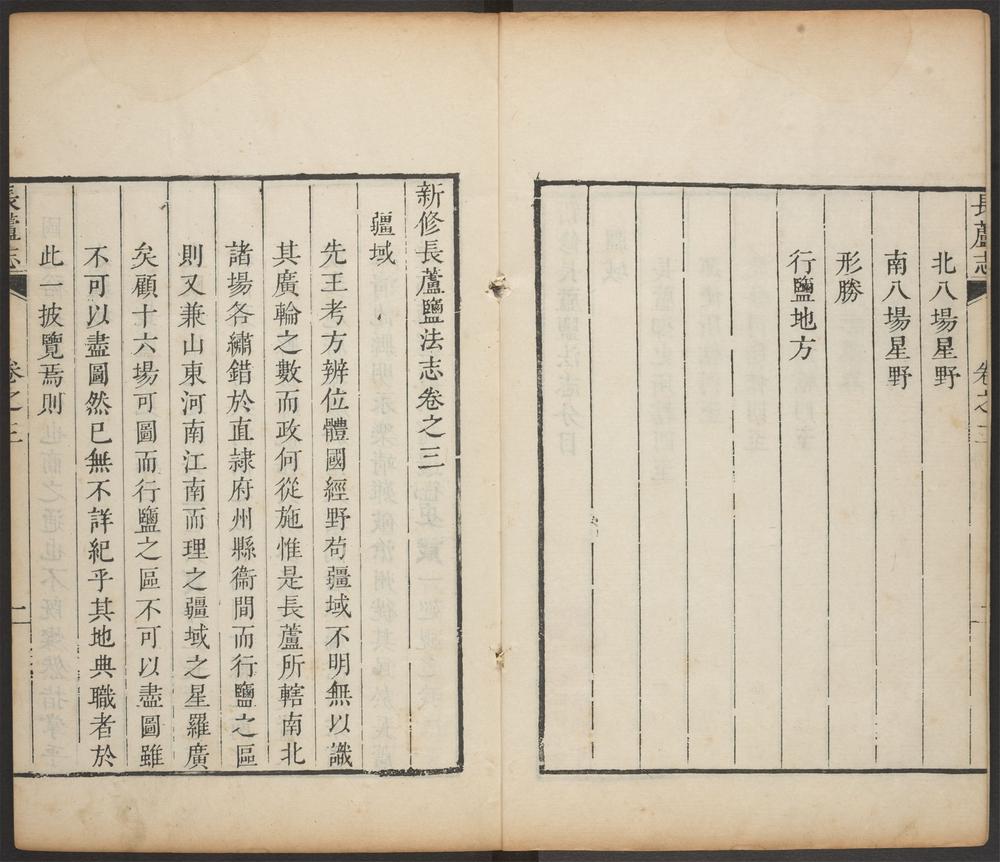 長蘆志
卷之三
北八場星野
南八場星野
形勝
行鹽地方
新修長蘆鹽法志卷之三
疆域
先王考方辨位體國經野苟疆域不明無以識
其廣輪之數而政何從施惟是長蘆所轄南北
諸場各繡錯於直隷府州縣衞間而行鹽之區
則又兼山東河南江南而理之疆域之星羅廣
矣顧十六場可圖而行鹽之區不可以盡圖雖
不可以盡圖然已無不詳紀乎其地典職者於
此一披覽焉則
長蘆志
卷之三